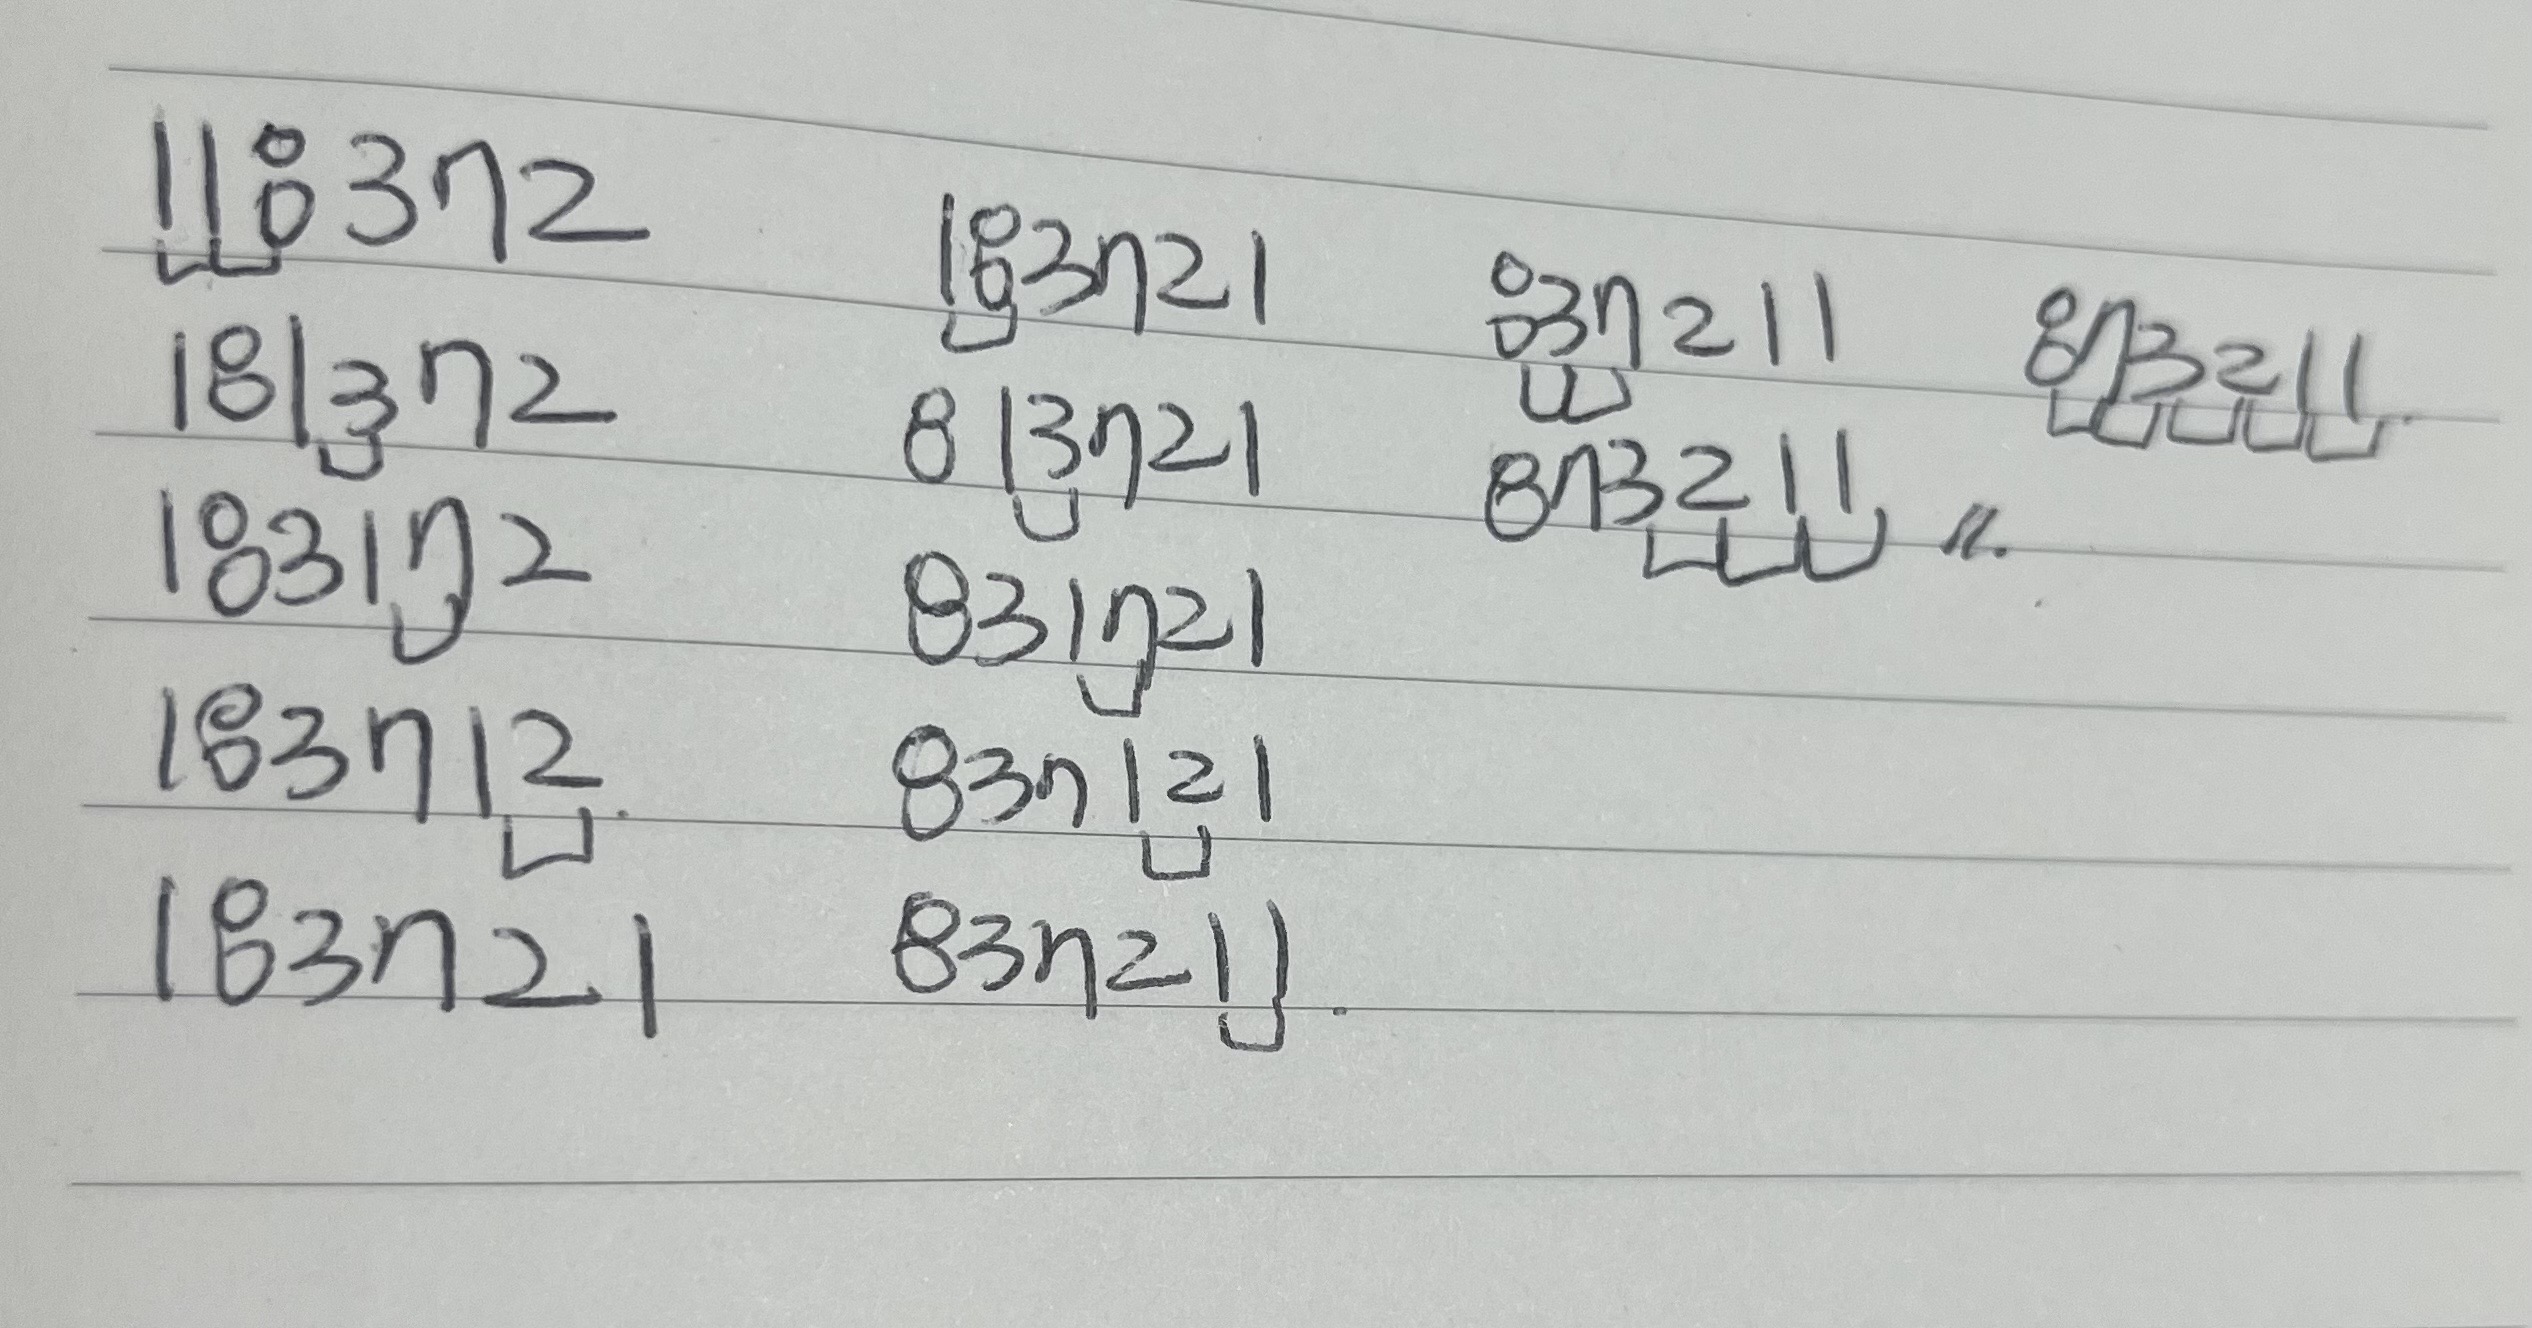 118372
181372
183172
183712
183721
183721
813721
831721
837121
837211
837211
873211 //.
873211